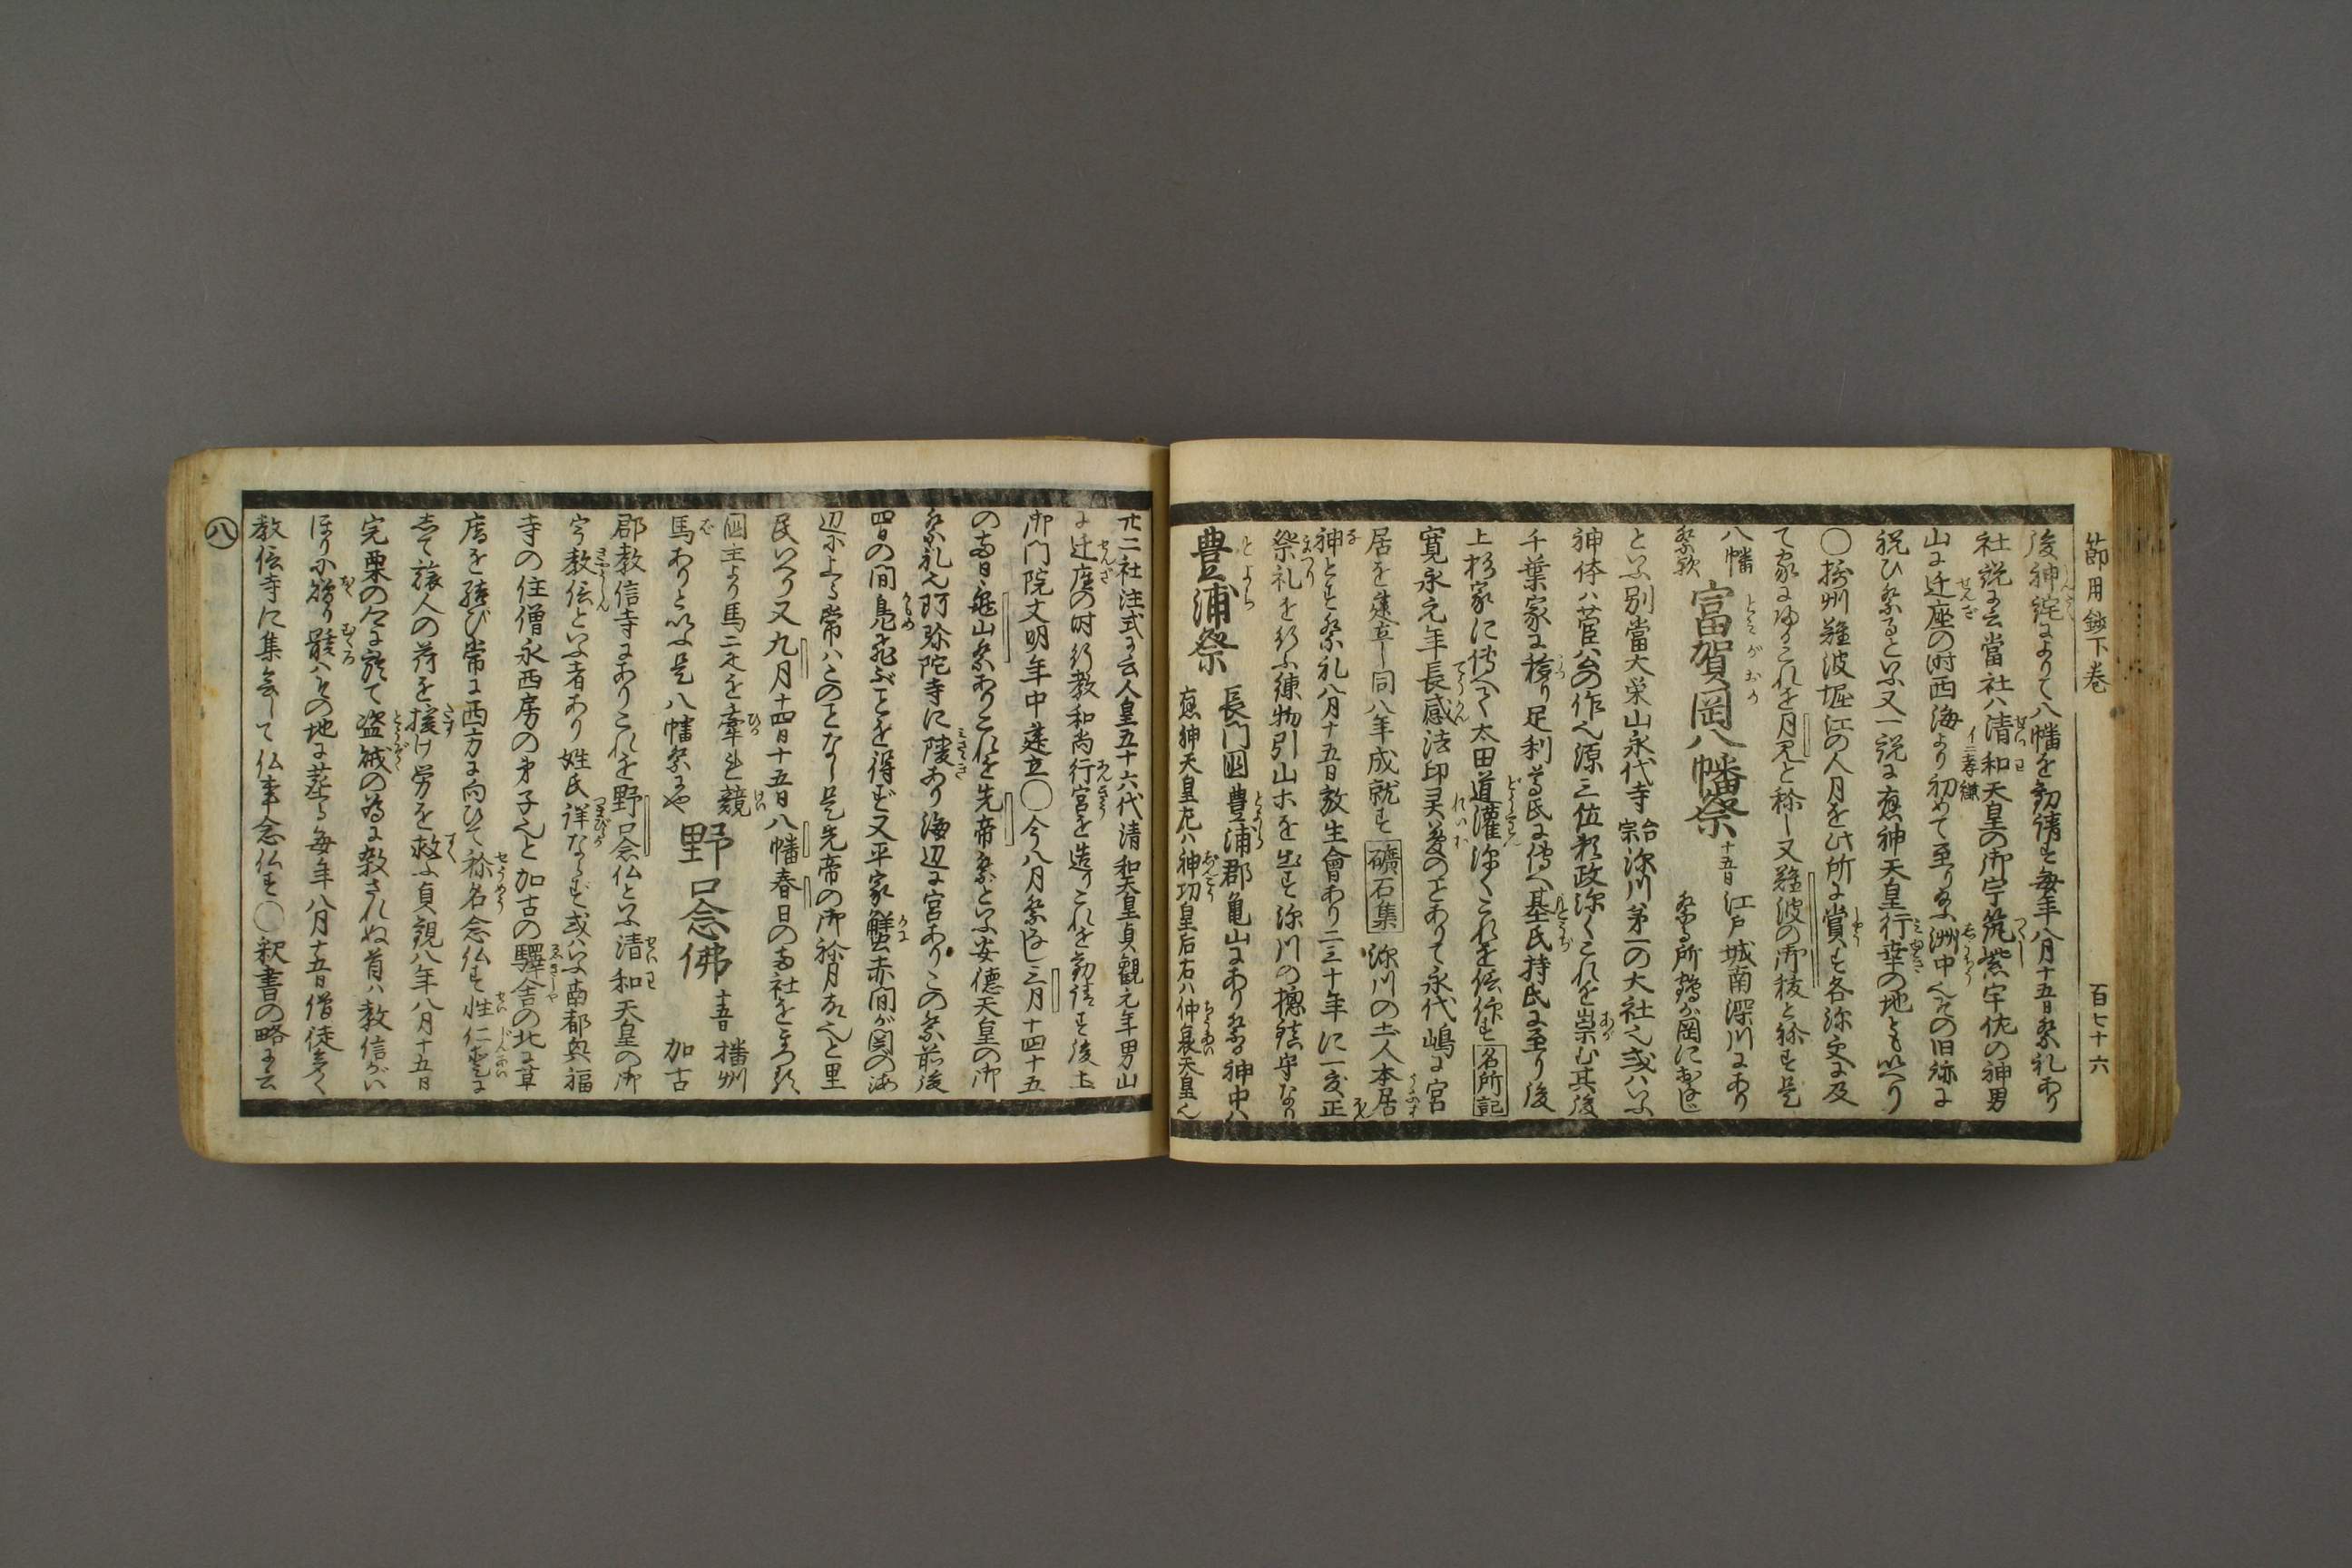 節用鈔下巻
百七十六
後神詫によりて八幡を勧請す毎年八月十五日祭礼あり
社説に云當社ハ清和天皇の御宇筑紫宇佐の神男
山に迁座の时西海より初めて至り洲中その旧跡に
祝ひ祭るといふ又一説に應神天皇行幸の地とも以へり
〇摂州難波堀江の人月を此所に賞す各深更に及
て家にこれを月見と称し又難波の御祓と称す是
八幡祭欤
富賀岡八幡祭
十五日
江戸城南深川にあり
祭る所鶴が岡におなじ
といふ別當大栄山永代寺台宗深川第一の大社也或ハいふ
神体ハ菅公の作也源三位頼政深くこれを崇む其後
千葉家に移り足利尊氏に傳へ基氏持氏に至り後
上杉家に傳へて太田道灌深くこれを信仰す名所記
寛永元年長感法印灵夢のことありて永代嶋に宮
居を建立し同八年成就す礦石集深川の土人本居
神とす祭礼八月十五日放生會あり二三十年に一度正
祭礼を行ふ練物引山ホを出す深川の惣鎮守なり
豊浦祭
長門国豊浦郡亀山にあり祭る神中ハ
應神天皇左ハ神功皇后右ハ仲哀天皇也
廿二社注式に云人皇五十六代清和天皇貞観元年男山
に迁座の时行教和尚行宮を造りこれを勧請す後土
御門院文明年中建立〇今八月祭なし三月十四十五
の両日亀山祭ありこれを先帝祭といふ安徳天皇の御
祭礼也阿弥陀寺に陵あり海辺に宮ありこの祭前後
四日の間鳧飛ぶことを得ず又平家蟹赤間が関の海
辺による常ハこのことなし是先帝の御祥月故也と里
民いへり又九月十四日十五日八幡春日の両社をまつる
國主より馬二疋を牽と競
馬ありと以ふ是八幡祭にや
野口念佛
十五日
播州
加古
郡教信寺にありこれを野口念仏といふ清和天皇の御
宇教信といふ者あり姓氏詳ならず或ハいふ南都興福
寺の住僧永西房の弟子也と加古の驛舎の北に草
庵を結び常に西方に向ひて称名念仏す性仁愛に
して旅人の荷を援け労を救ふ貞観八年八月十五日
宍粟の に於て盗賊の為に殺されぬ首ハ教信がい
ほりに 骸ハその地に葬る毎年八月十五日僧徒多く
教信寺に集會して仏事念仏す〇釈書の略に云
八